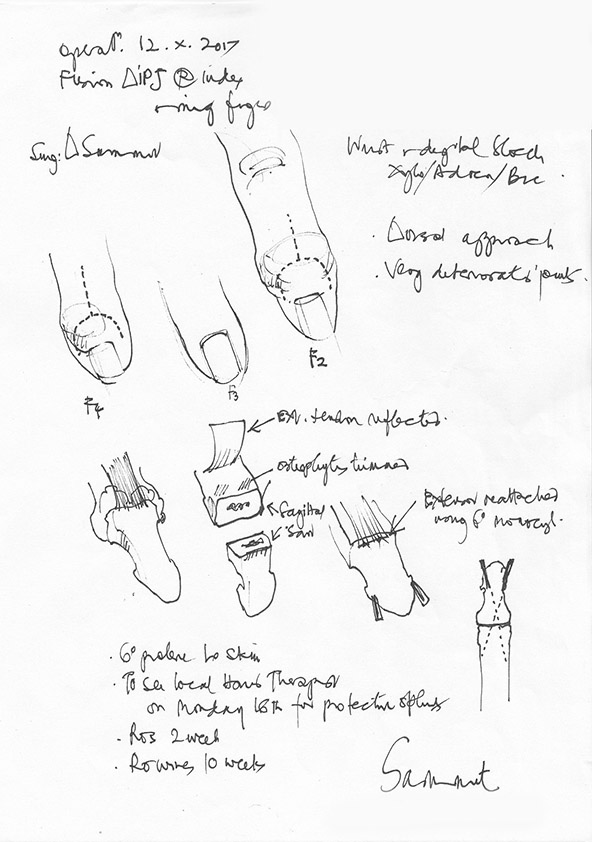 operatn. 12.x.2017
Fusion DIPJ Ⓡ index
+ ring finger
Surg: D Sammut
Wrist + digital block
Xylo/Adren/Biv.
· Dorsal approach
· Very deteriorated joints.
F4
F3
F2
Ext. tendon reflected.
osteophytes trimmed
Sagittal
Saw
Extensor reattached
using 6° monocryl.
· 6° prolene to skin
· To see local Hand Therapist
on Monday 16th for protective splints
· Ros 2 week
· Ro wires 10 weeks
Sammut